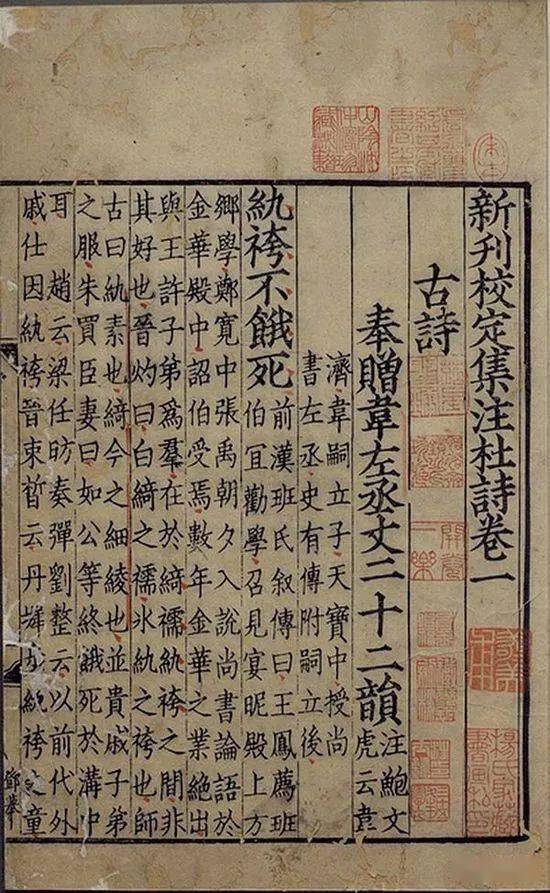 新刊校定集注杜詩卷一
古詩
奉贈韋左丞丈二十二韻 注鮑文
虎云韋
濟韋嗣立子天寶中授尚
書左丞史有傳附嗣立後
紈袴不餓死 前漢班氏叙傳曰王鳳薦班
伯宜勸學召見宴昵殿上方
鄉學鄭寬中張禹朝夕入說尚書論語於
金華殿中詔伯受焉數年金華之業絶出
與王許子弟爲羣在於綺襦紈袴之間非
其好也晉灼曰白綺之襦氷紈之袴也師
古曰紈素也綺今之細綾也並貴戚子弟
之服朱買臣妻曰如公等終餓死於溝中
耳 趙云梁任昉奏彈劉整云以前代外
戚仕因紈袴晉束晳云丹墀步紈袴之童